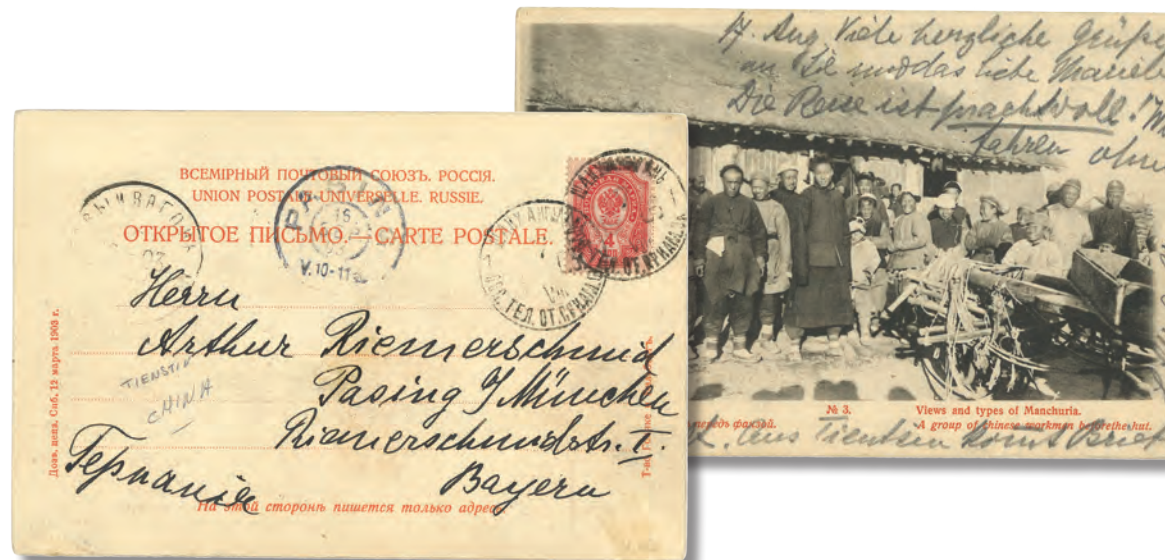 ВСЕМІРНЫЙ ПОЧТОВЫЙ СОЮЗЪ. РОССІЯ.
UNION POSTALE UNIVERSELLE. RUSSIE.
ОТКРЫТОЕ ПИСЬМО.—CARTE POSTALE.
4
V.10-11
Herrn
Arthur Riemerschmid
Pasing b/ München
Riemerschmidstr. I.
Bayern
Германія
TIENSTIN
CHINA
На этой сторонѣ пишется только адресъ.
Дозв. ценз. Спб. 12 марта 1903 г.
17. Aug. Viele herzliche Grüße
an Sie und das liebe
Die Reise ist prachtvoll!
fahren ohne
№ 3.
передъ фанзой.
Views and types of Manchuria.
A group of chinese workmen before the hut.
aus Tientsin komt Brief